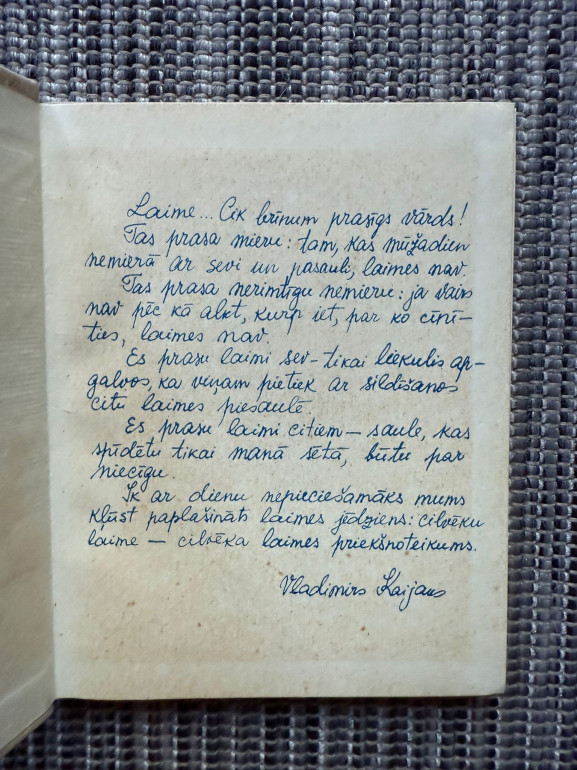 Laime... Cik brīnum prasīgs vārds!
Tas prasa mieru: tam, kas mūždien
nemierā ar sevi un pasauli, laimes nav.
Tas prasa nerimtīgu nemieru: ja vairs
nav pēc kā alkt, kurp iet, par ko cīnī-
ties, laimes nav.
Es prasu laimi sev – tikai liekulis ap-
galvos, ka viņam pietiek ar sildīšanos
citu laimes piesaulē.
Es prasu laimi citiem — saule, kas
spīdētu tikai manā sētā, būtu par
niecīgu.
Ik ar dienu nepieciešamāks mums
kļūst paplašināts laimes jēdziens: cilvēku
laime — cilvēka laimes priekšnoteikums.
Vladimirs Kaijaks